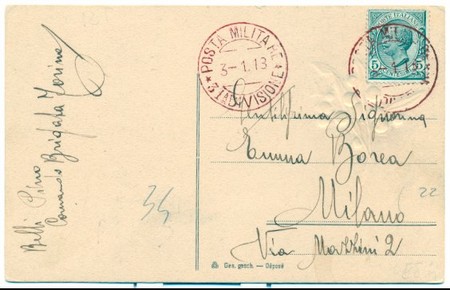 Belli Pino
Comando Brigata Torino
* POSTA MILITARE *
3-1.13
3ª DIVISIONE
POSTE ITALIANE
5 5
Gentilissima Signorina
Emma Borea
Milano
Via Mazzini 2
34
22
Ges. gesch. — Déposé